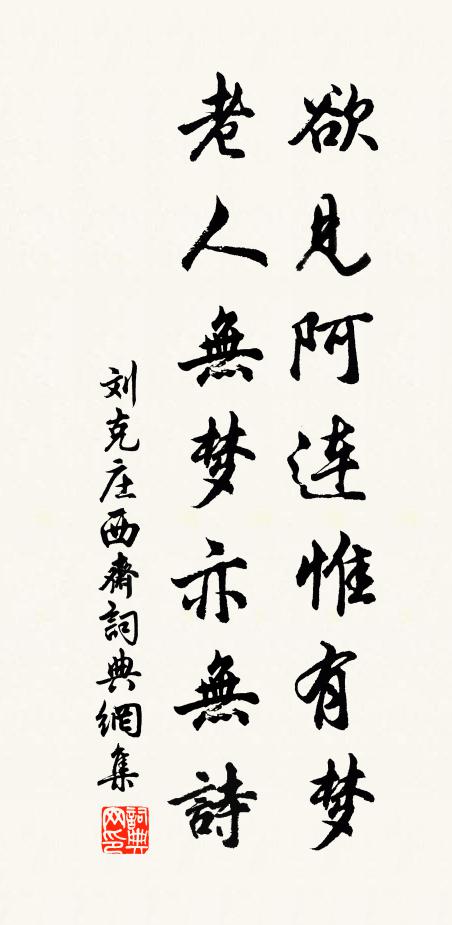 欲见阿连惟有梦
老人無梦亦無詩
刘克庄西齋詞典網集
詞典网印